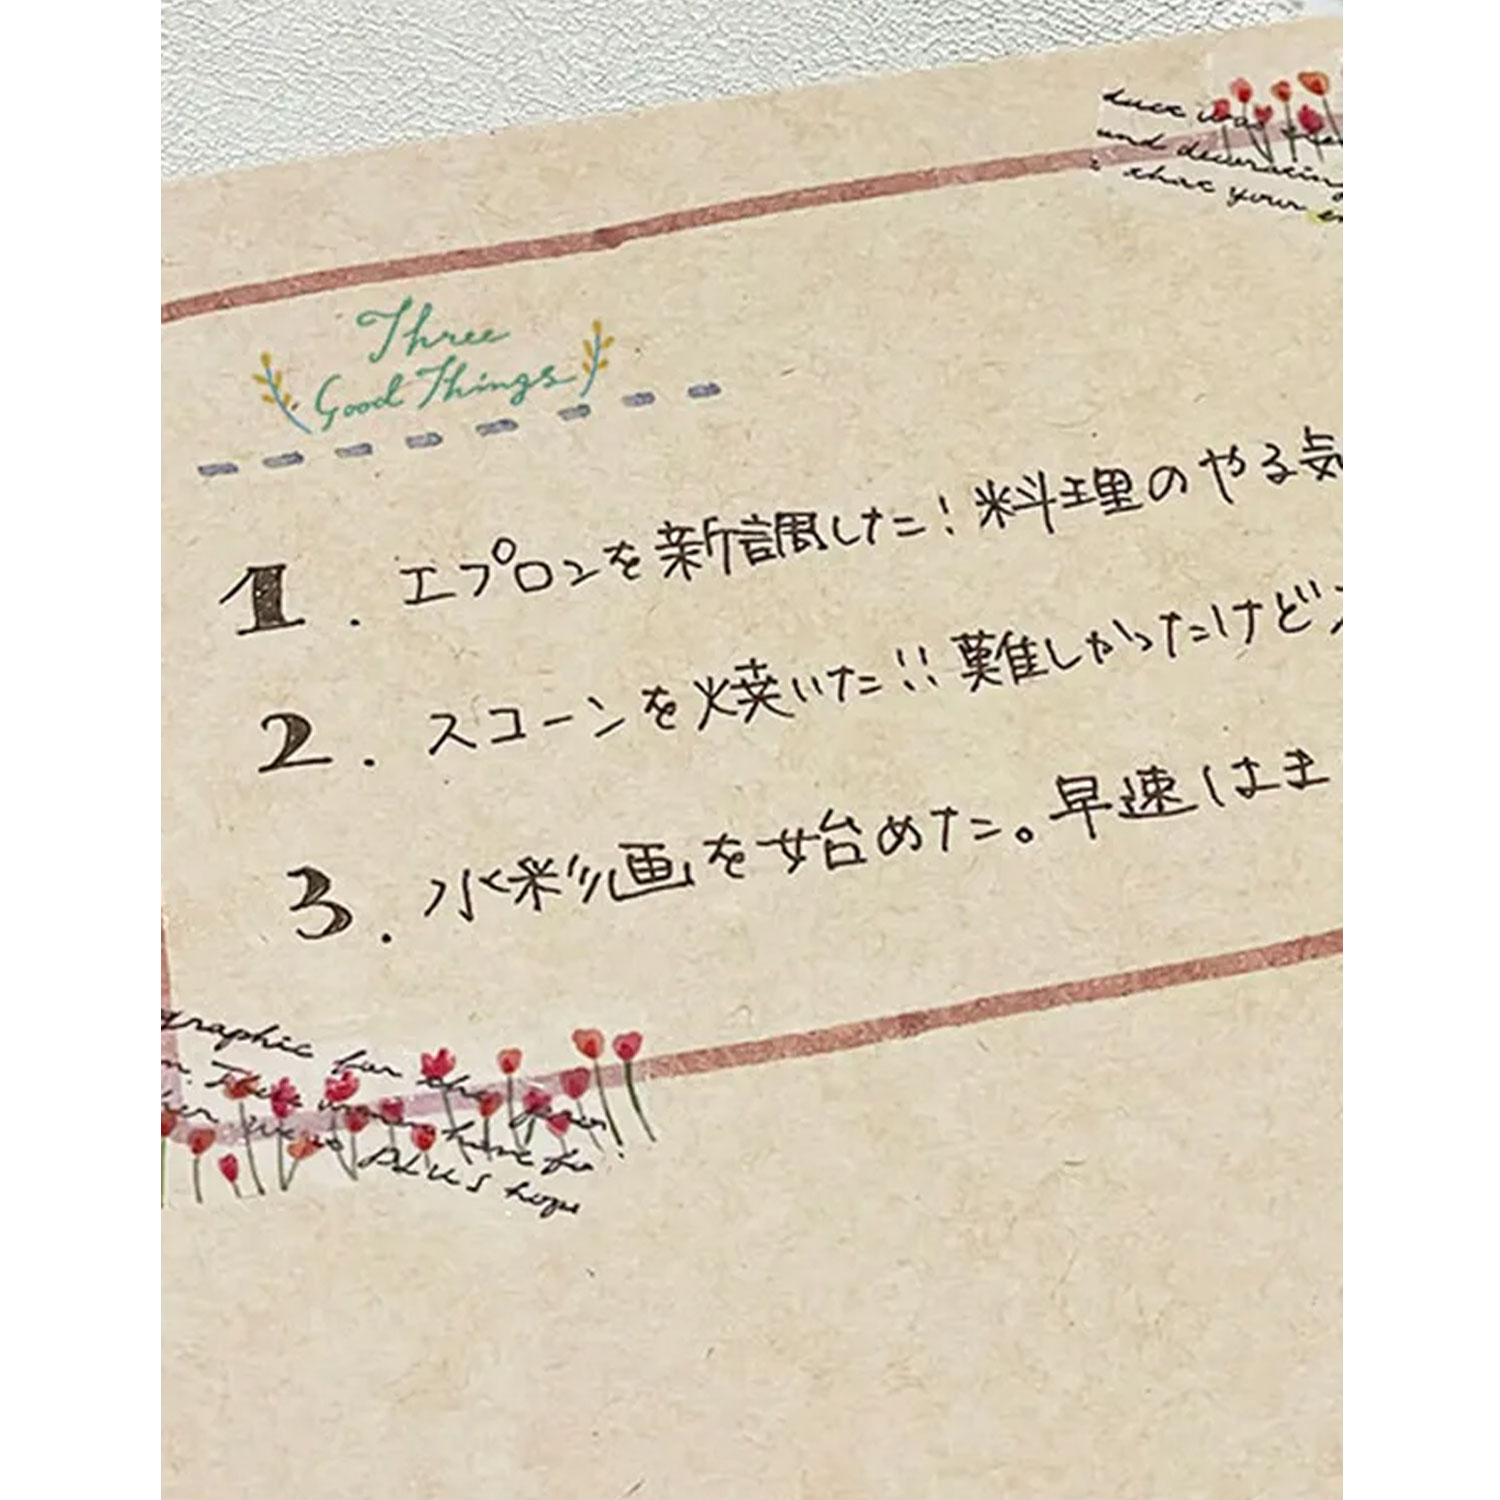 duct was
and decorating
that your
Three
Good Things
1. エプロンを新調した!料理のやる気
2. スコーンを焼いた!!難しかったけど
3. 水彩画を始めた。早速はま
graphic for the
PLUS hope